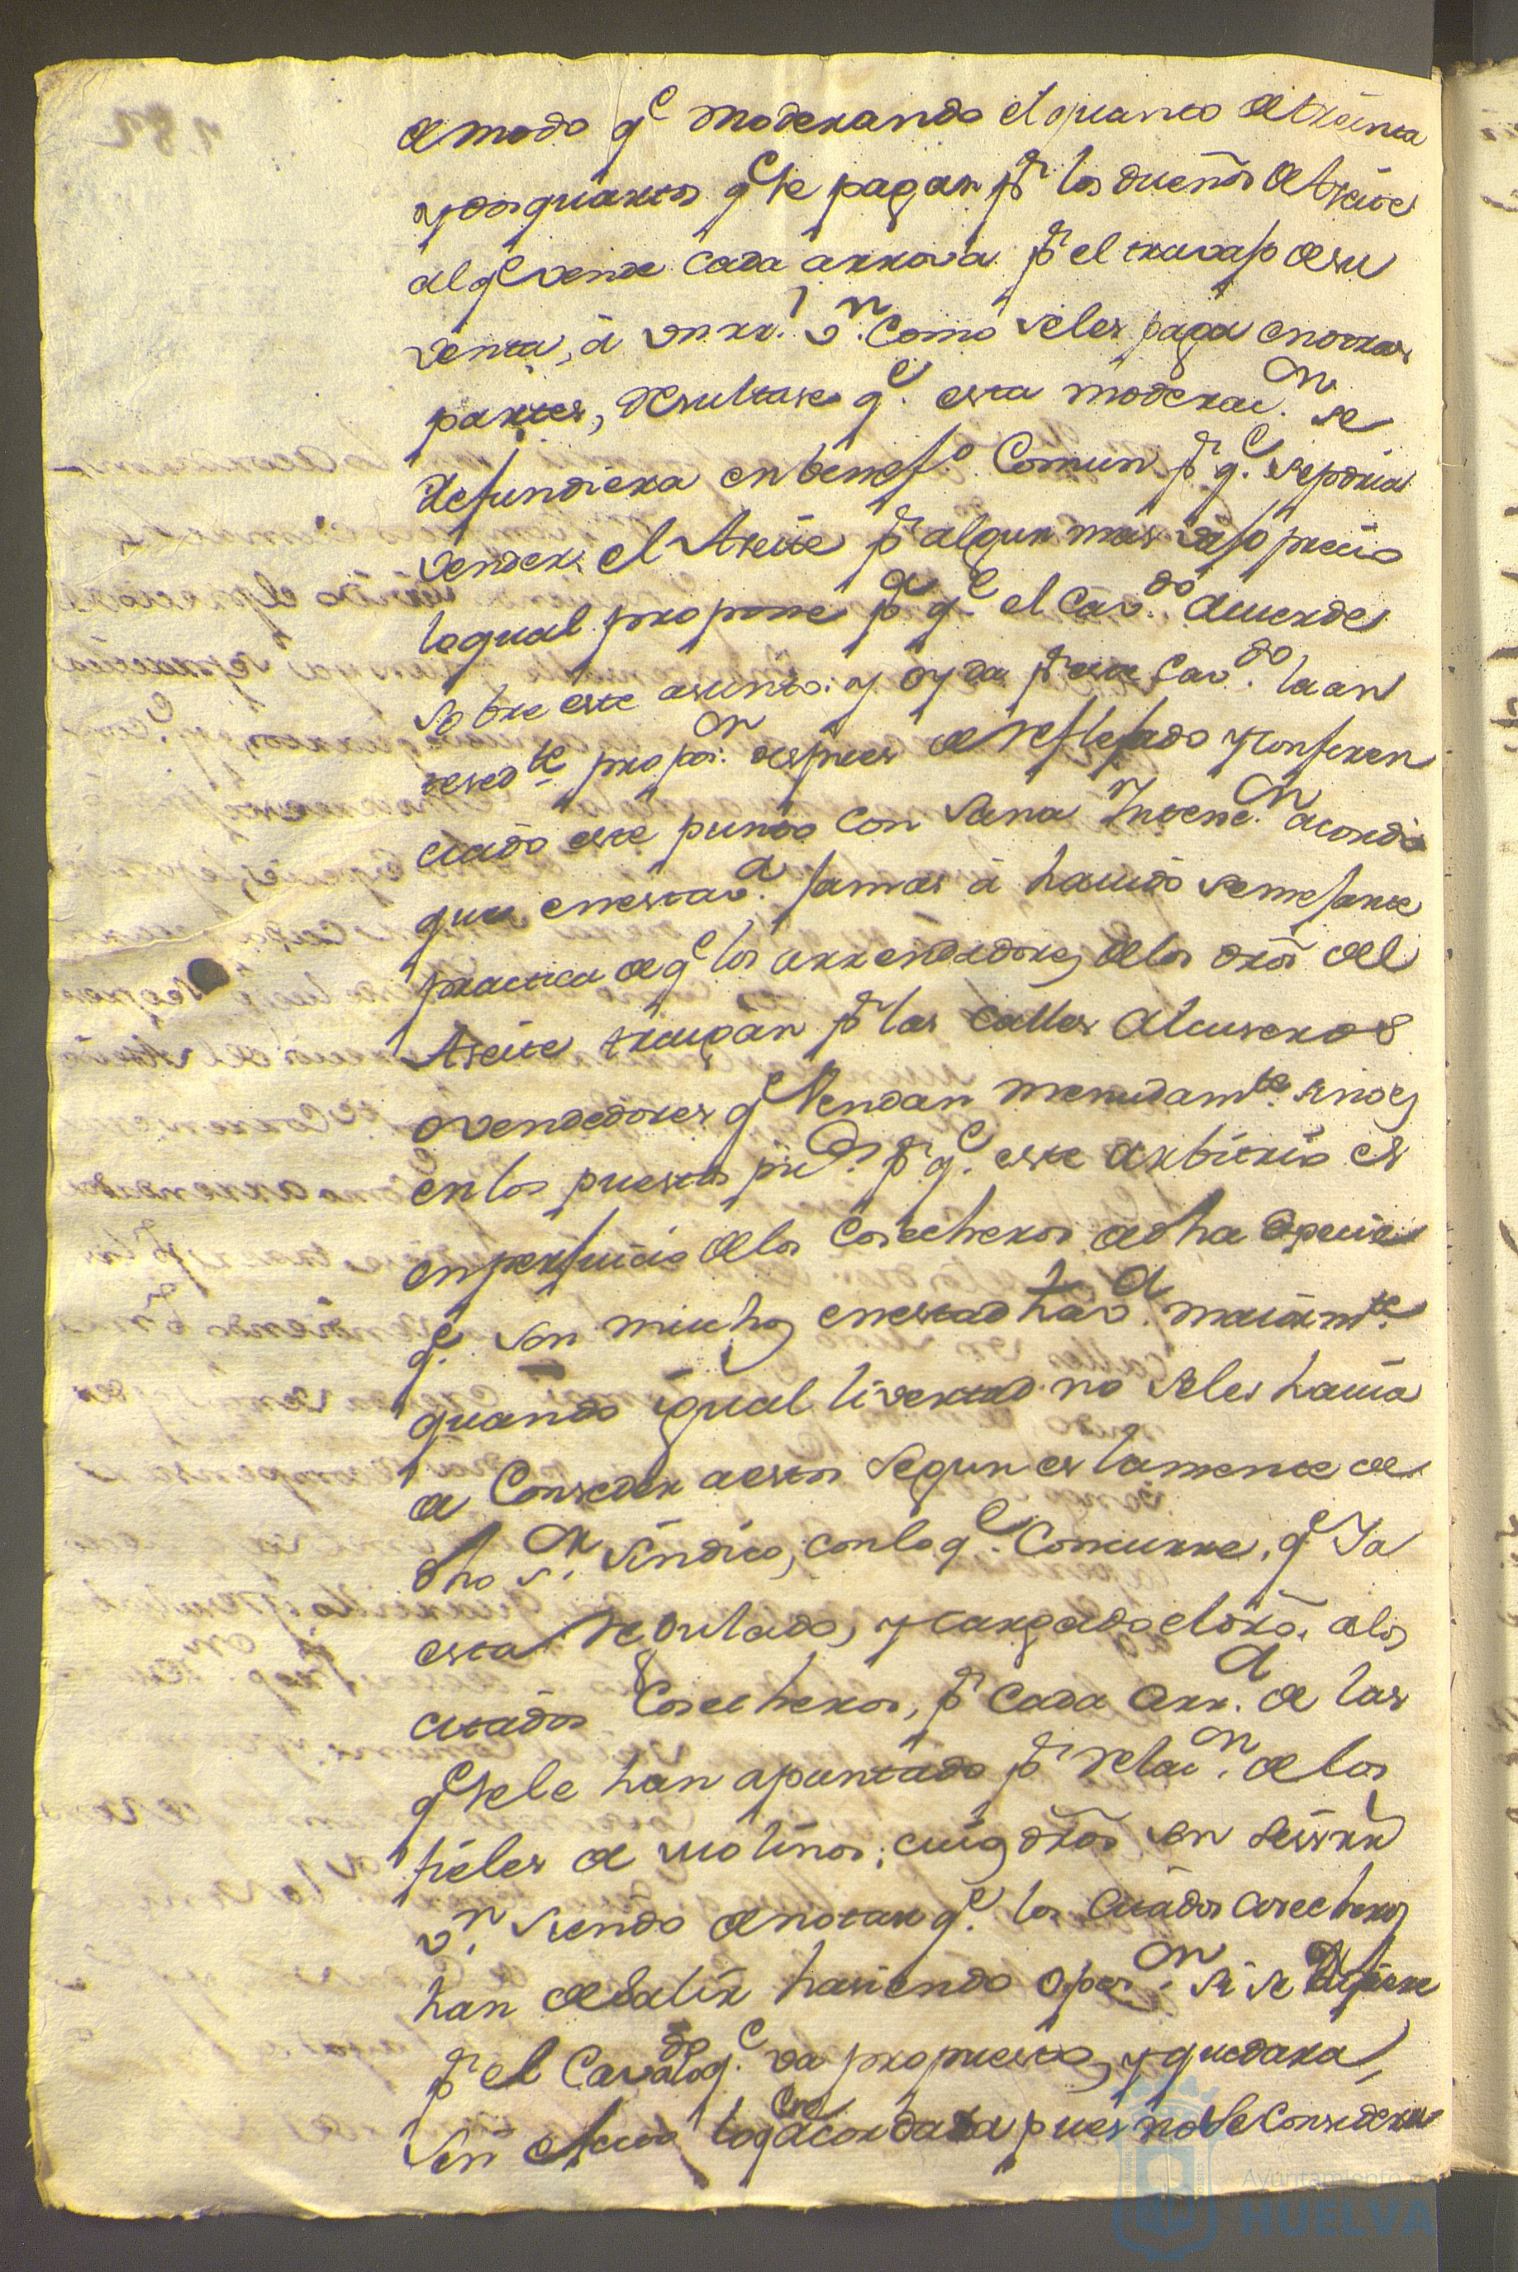 de modo q^e moderando el quanto de treinta
y dos quartos q^e se pagan p^r los dueños de Aseite
al q^e vende cada arrova p^r el travajo de su
venta, à un rr^l v^n. Como se les paga en otras
partes, resultase q^e. esta moderac^on. se
refundiera en benef^o. Comun p^r q^e. se podria
vender el Aseite p^r algun mas vajo precio
lo qual propone p^a q^e el Cav^do. acuerde
sobre este asunto: y oyda p^r este Cav^do. la an
teced^te propos^on. despues de reflejado y conferen
ciado este punto con sana Intenc^on. acordò
que en esta v^a. jamas à havido semejante
practica de q^e los arrendadores de los dros del
Aseite traigan p^r las calles Alcuseros
o vendedores q^e vendan menudam^te. sino es
en los puestos pu^cos. p^r q^e. este arbitrio es
en perjuicio de los Cosecheros de dha especie
q^e. son muchos en esta d^ha v^a. maiorm^te.
quando igual livertad no se les havia
de Conseder a estos segun es la mente de
dho s^or. sindico, con lo q^e. Concurre, q^e Ya
esta regulado, y cargado el dro. a los
citados Cosecheros, p^r cada arr^a. de las
q^e se le han apuntado p^r relac^on. de los
fieles de molinos; cuios dros son seis rr^s
v^n. siendo de notar q^e. los citados cosecheros
han de salir hasiendo opos^on. si se difiere
p^r el Cavildo a lo q^e. va propuesto, y quedara
sin efecto lo q^e acordara pues no se considera
Ayuntamiento de
HUELVA